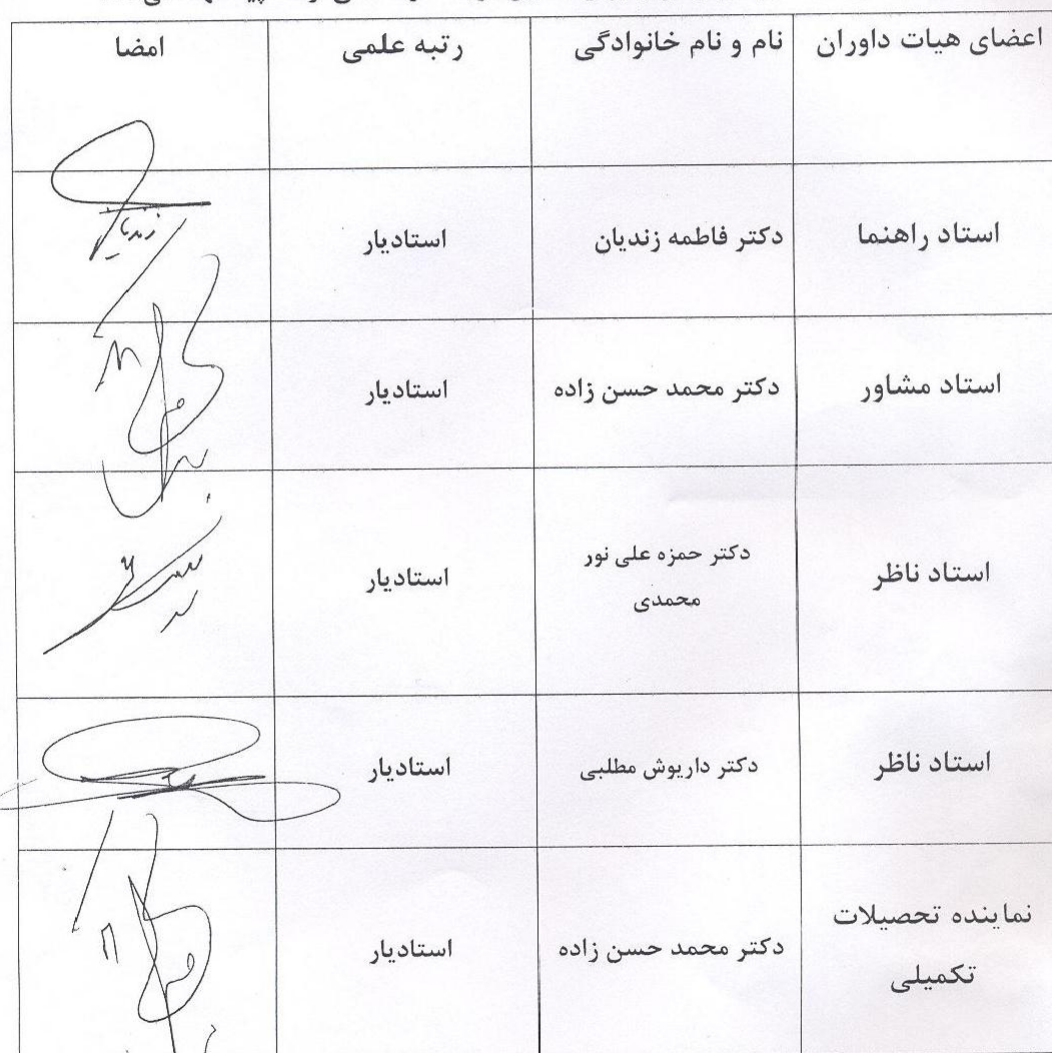 اعضای هیات داوران نام و نام خانوادگی رتبه علمی امضا
استاد راهنما دکتر فاطمه زندیان استادیار
استاد مشاور دکتر محمد حسن زاده استادیار
استاد ناظر دکتر حمزه علی نور محمدی استادیار
استاد ناظر دکتر داریوش مطلبی استادیار
نماینده تحصیلات تکمیلی دکتر محمد حسن زاده استادیار